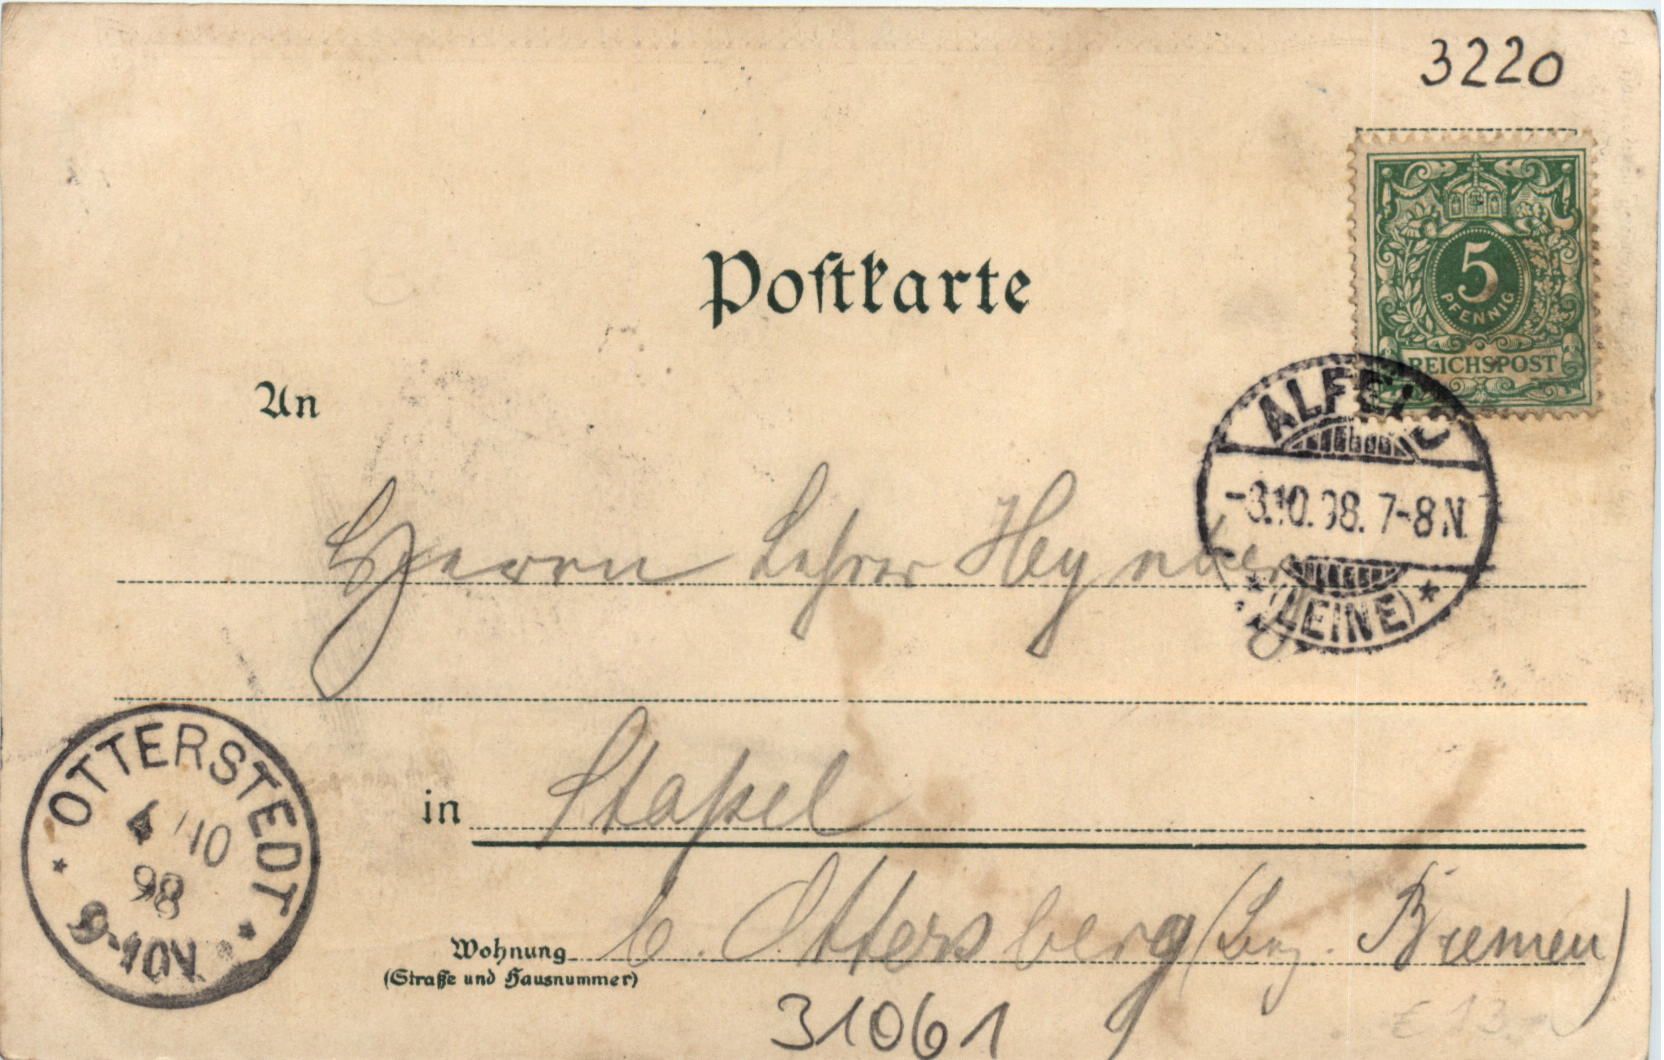 3220
5
PFENNIG
REICHSPOST
Postkarte
An
ALFELD
-3.10.98. 7-8N.
* (LEINE) *
Herrn Lehrer
in Stapel
OTTERSTEDT
4/10
98
9-10V.
Wohnung b. Ottersberg (Bez. Bremen)
(Straße und Hausnummer)
31061
€ 13.-